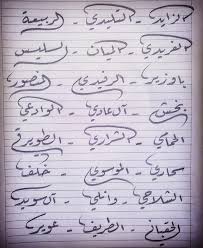 الزايد - التليدي - الربيعة
الفريدي - اليان - السليس
باوزير - الرفيدي - المنصور
بخش - آل عادي - الوادعي
الحامي - الشراري - الطويرقي
سحاري - الموسوي - خلف
الشلاحي - وائلي - آل سويد
الحقباني - الطريف - عوير